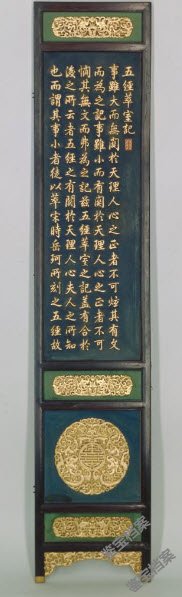 五經萃室記
事雖大而無關於天理人心之正者不可炫其有文
而為之記事雖小而有關於天理人心之正者不可
惜其無文而弗為之記茲五經萃室之記蓋有合於
後之所云者五經之有關於天理人心夫人之所知
也而謂其事小者後以萃宋時岳珂所刻之五經故
鉴宝档案